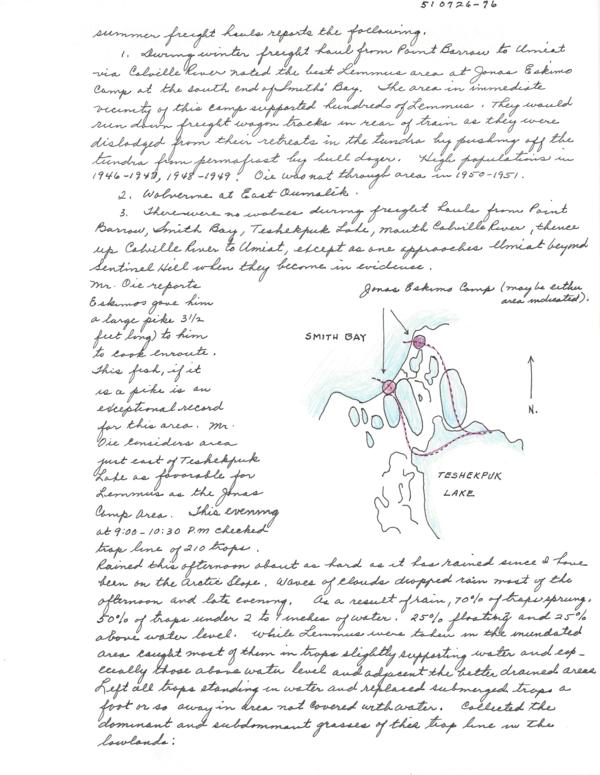 510726-76
summer freight hauls reports the following.
1. During winter freight haul from Point Barrow to Umiat
via Colville River noted the best Lemmus area at Jonas Eskimo
Camp at the south end of Smiths' Bay. The area in immediate
vicinity of this camp supported hundreds of Lemmus. They would
run down freight wagon tracks in rear of train as they were
dislodged from their retreats in the tundra by pushing off the
tundra from permafrost by bull dozer. High populations in
1946-1947, 1948-1949. Oie was not through area in 1950-1951.
2. Wolverine at East Oumalik.
3. There were no wolves during freight hauls from Point
Barrow, Smith Bay, Teshekpuk Lake, mouth Colville River, thence
up Colville River to Umiat, except as one approaches Umiat beyond
Sentinel Hill when they become in evidence.
Mr. Oie reports
Eskimos gave him
a large pike 3 1/2
feet long) to him
to cook enroute.
This fish, if it
is a pike is an
exceptional record
for this area. Mr.
Oie considers area
just east of Teshekpuk
Lake as favorable for
Lemmus as the Jonas
Camp Area. This evening
at 9:00-10:30 P.M checked
trap line of 210 traps.
Jonas Eskimo Camp (may be either
area indicated).
SMITH BAY
N.
TESHEKPUK
LAKE
Rained this afternoon about as hard as it has rained since I have
been on the Arctic Slope. Waves of clouds dropped rain most of the
afternoon and late evening. As a result of rain, 70% of traps sprung.
50% of traps under 2 to 9 inches of water. 25% floating and 25%
above water level. While Lemmus were taken in the inundated
area caught most of them in traps slightly supporting water and esp-
ecially those above water level and adjacent the better drained areas
Left all traps standing in water and replaced submerged traps a
foot or so away in area not covered with water. Collected the
dominant and subdominant grasses of this trap line in the
lowlands: